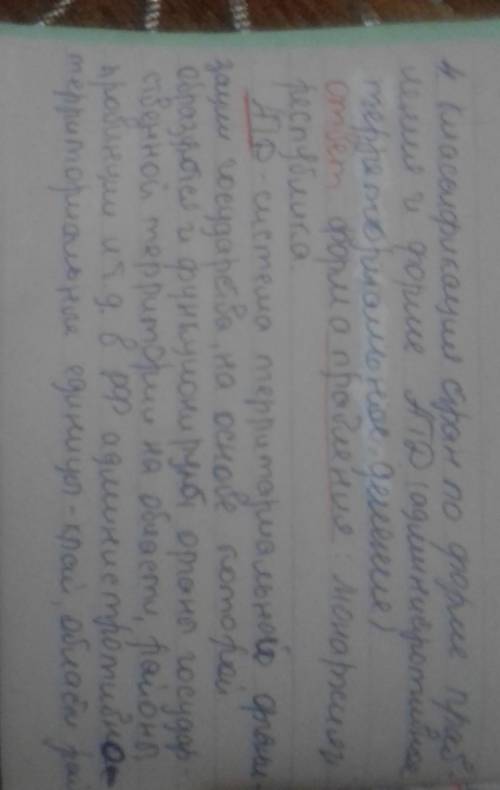 4 Класыфикация стран по форме прав-
ления и форме АТД (админивротивное
территориальное деления)
ответ форма правления: монархия,
республика.
АТД - система территориального
зации государства, на основе которой
образуются и функционируют органы государ-
ственной территории на области, районы
провинции и т.д. в РФ админнстротивно-
территориальные единицы - край, область